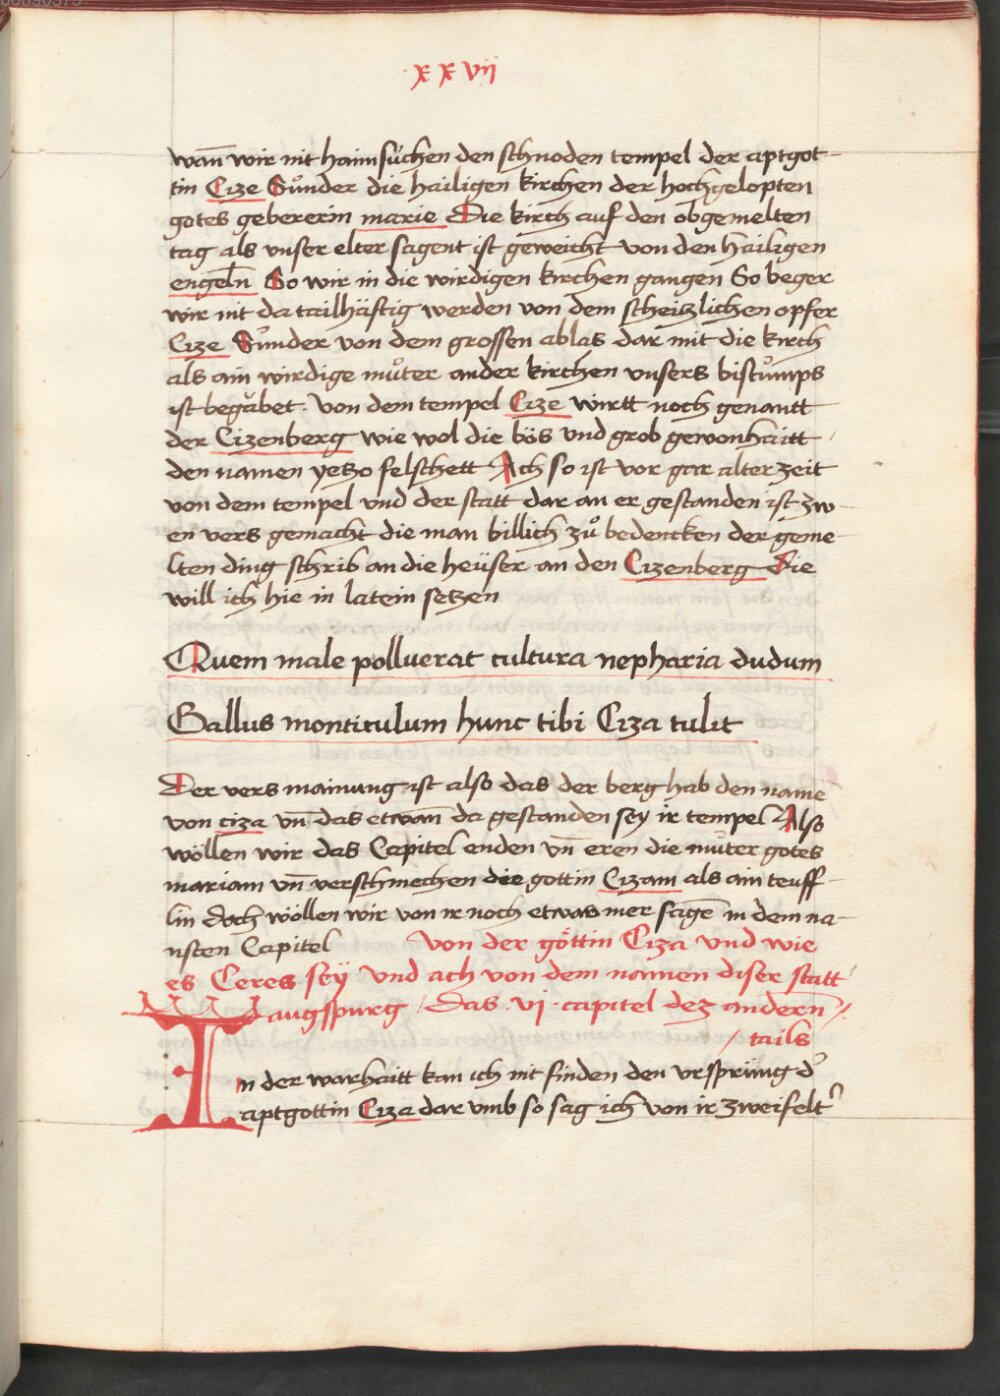 xxvij
wan̄ wir nit haimsůchen den schnoden tempel der aptgot-
tin Cize Sůnder die hailigen kirchen der hochgelopten
gotes gebererin marie Die kirch auf den obgemelten
tag als vnser elter sagent ist geweicht von den hailigen
engeln̄ So wir in die wirdigen kirchen gangen So beger
wir nit da tailhäftig werden von dem scheiszlichen opfer
Cize Sůnder von dem grossen ablas dar mit die kirch
als ain wirdige můter ander kirchen vnsers bistůmps
ist begăbet. von dem tempel Cize wirtt noch genantt
der Cizenberg wie wol die bös vnd grob gewonhaitt
den namen yetzo felschett Ach so ist vor gar alter zeit
von dem tempel vnd der statt dar an er gestanden ist zw-
en vers gemacht die man billich zů bedencken der geme-
lten ding schrib an die heüser an den Cizenberg Die
will ich hie in latein setzen
Quem male polluerat cultura nepharia dudum
Gallus monticulum hunc tibi Ciza tulit
Der vers mainung ist also das der berg hab den name
von ciza vn̄ das etwan̄ da gestanden sey ir tempel Also
wöllen wir das Capitel enden vn̄ eren die můter gotes
mariam vn̄ verschmechen die gottin Cizam als ain teuff-
lin doch wöllen wir von ir noch etwas mer sagē in dem na-
nsten Capitel von der göttin Ciza vnd wie
es Ceres seÿ vnd ach von dem namen diser statt
augspurg / Das .vj. capitel dez andern̄ /
/ tails
In der warhaitt kan ich nit finden den vrsprüng d'
aptgottin Ciza dar vmb so sag ich von ir zweifelt'